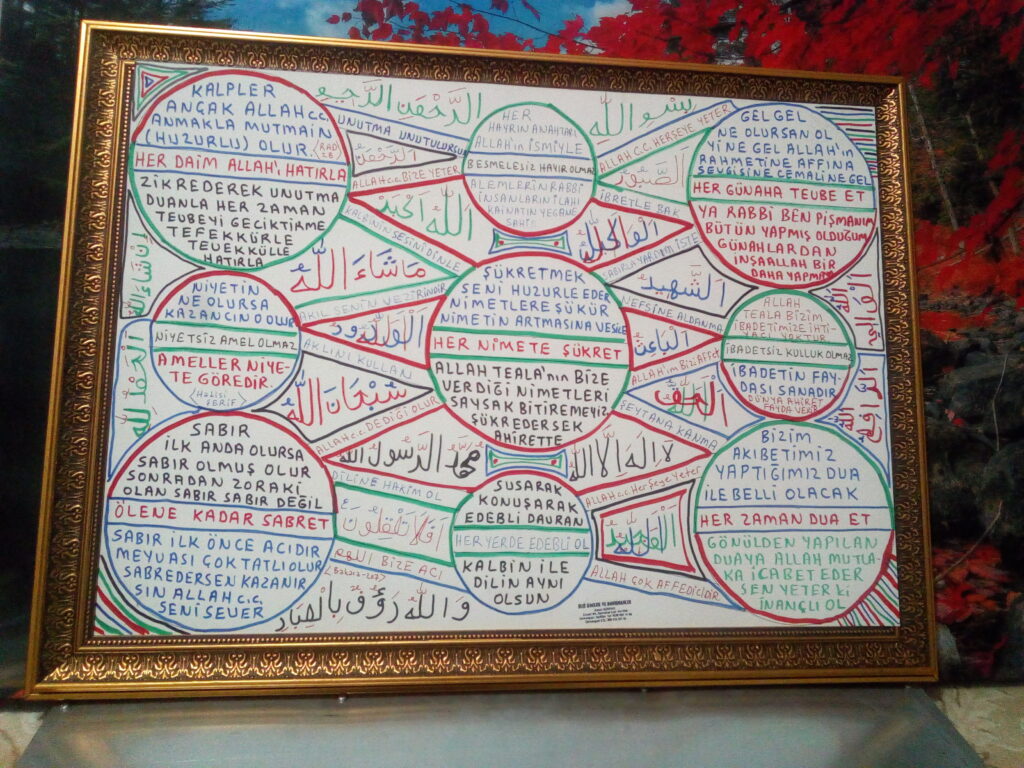 KALPLER
ANÇAK ALLAH c.c.
ANMAKLA MUTMAİN
(HUZURLU) OLUR.
HER DAİM ALLAH'ı HATIRLA
ZİKREDEREK UNUTMA
DUANLA HER ZAMAN
TEUBEYİ GECİKTİRME
TEFEKKÜRLE
TEUEKKÜLLE
HATIRLA
الرَّحْمَنِ الرَّحِيمِ
بِسْمِ اللَّهِ
UNUTMA UNUTULURSUN
ALLAH c.c. BİZE YETER
KALBİNİN SESİNİ DİNLE
HER
HAYRIN ANAHTARI
ALLAH'ın İSMİYLE
BESMELESİZ HAYIR OLMAZ
ALEMLERİN RABBİ
İNSANLARIN İLAHI
KAİNATIN YEGANE
SAHİBİ
ALLAH C.C. HERŞEYE YETER
الصَّبُورُ
İBRETLE BAK
SABIRLA YARDIM İSTE
GEL GEL
NE OLURSAN OL
YİNE GEL ALLAH'ın
RAHMETİNE AFFINA
SEVGİSİNE CEMALİNE GEL
HER GÜNAHA TEUBE ET
YA RABBİ BEN PİŞMANIM
BÜTÜN YAPMIŞ OLDUĞUM
GÜNAHLARDAN
İNŞAALLAH BİR
DAHA YAPMAM
مَاشَاءَ اللَّهُ
AKIL SENİN VEZİRİNDİR
AKLINI KULLAN
سُبْحَانَ اللَّهِ
ALLAH c.c. DEDİĞİ OLUR
NİYETİN
NE OLURSA
KAZANCIN O OLUR
NİYETSİZ AMEL OLMAZ
AMELLER NİYE-
TE GÖREDİR.
(Hadisi
ŞERİF)
ŞÜKRETMEK
SENİ HUZURLE EDER
NİMETLERE ŞÜKÜR
NİMETİN ARTMASINA VESİLE
HER NİMETE ŞÜKRET
ALLAH TEALA'nın BİZE
VERDİĞİ NİMETLERİ
SAYSAK BİTİREMEYİZ
ŞÜKREDERSEK
AHİRETTE
الشَّهِيدُ
NEFSİNE ALDANMA
الْبَاعِثُ
ALLAH'ım BİZ AFFET
ŞEYTANA KANMA
ALLAH
TEALA BİZİM
İBADETİMİZE İHTİ-
YACI YOKTUR
İBADETSİZ KULLUK OLMAZ
İBADETİN FAY-
DASI SANADIR
DÜNYA AHİRET
FAYDA VERİR
الْحَمْدُ لِلَّهِ
SABIR
İLK ANDA OLURSA
SABIR OLMUŞ OLUR
SONRADAN ZORAKİ
OLAN SABIR SABIR DEĞİL
ÖLENE KADAR SABRET
SABIR İLK ÖNCE ACIDIR
MEYUASI ÇOK TATLI OLUR
SABREDERSEN KAZANIR
SIN ALLAH c.c.
SENİ SEUER
مُحَمَّدُ الرَّسُولُ اللَّه
DİLİNE HAKİM OL
أَفَلَا تَعْقِلُونَ
RABBİ BİZE ACI
وَاللَّهُ رَؤُوفٌ بِالْعِبَادِ
SUSARAK
KONUŞARAK
EDEBLİ DAURAN
HER YERDE EDEBLİ OL
KALBİN İLE
DİLİN AYNI
OLSUN
لَا إِلَهَ إِلَّا اللَّهُ
ALLAH c.c. Herşeye Yeter
ALLAH ÇOK AFFEDİCİDİR
BİZİM
AKIBETİMİZ
YAPTIĞIMIZ DUA
İLE BELLİ OLACAK
HER ZAMAN DUA ET
GÖNÜLDEN YAPILAN
DUAYA ALLAH MUTLA-
KA İCABET EDER
SEN YETER Kİ
İNANÇLI OL